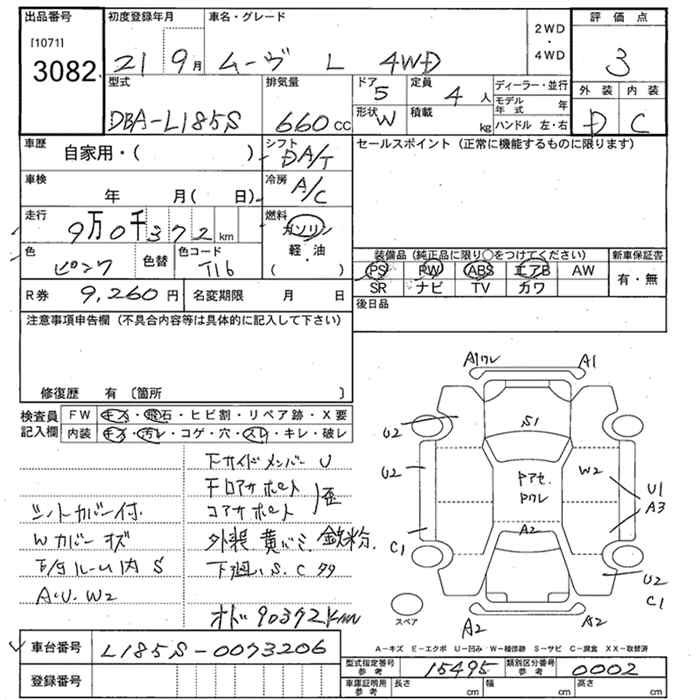 出品番号 初度登録年月 車名・グレード 評価点
[1071]
3082 21 9月 ムーヴ L 4WD 2WD ・ 4WD 3
型式 排気量 ドア 定員 ディーラー・並行 外装 内装
DBA-L185S 660cc 5 4人 モデル年式 年 D C
形状 W 積載 kg ハンドル 左・右
車歴 自家用・( ) シフト DA/T セールスポイント (正常に機能するものに限ります)
車検 年 月( 日) 冷房 A/C
走行 9万0千372km 燃料 ガソリン
軽・油
( )
色 ピンク 色替 色コード T16
装備品 (純正品に限り○をつけてください) 新車保証書
PS PW ABS エアB AW 有・無
SR ナビ TV カワ
R券 9,260円 名変期限 月 日 後日品
注意事項申告欄 (不具合内容等は具体的に記入して下さい)
修復歴 有 〔箇所 〕
検査員記入欄 FW キズ・飛石・ヒビ割・リペア跡・X要
内装 キズ・汚レ・コゲ・穴・スレ・キレ・破レ
下サイドメンバー U
コアサポート
シートカバー付
Wカバー キズ 外装 黄バミ 鉄粉
ルーム内 S 下廻りS.C
A.U.W2
オド90372km
A1ワレ A1
U2 S1
U2 W2 U1
ドアセ. A3
ドワレ
C1 A2
U2
C1
スペア A2 A2
A-キズ E-エクボ U-凹み W-補修跡 S-サビ C-腐食 XX-取替済
車台番号 L185S-0073206
登録番号
型式指定番号 参考 15495 類別区分番号 参考 0002
車庫証明用 参考 長さ cm 幅 cm 高さ cm